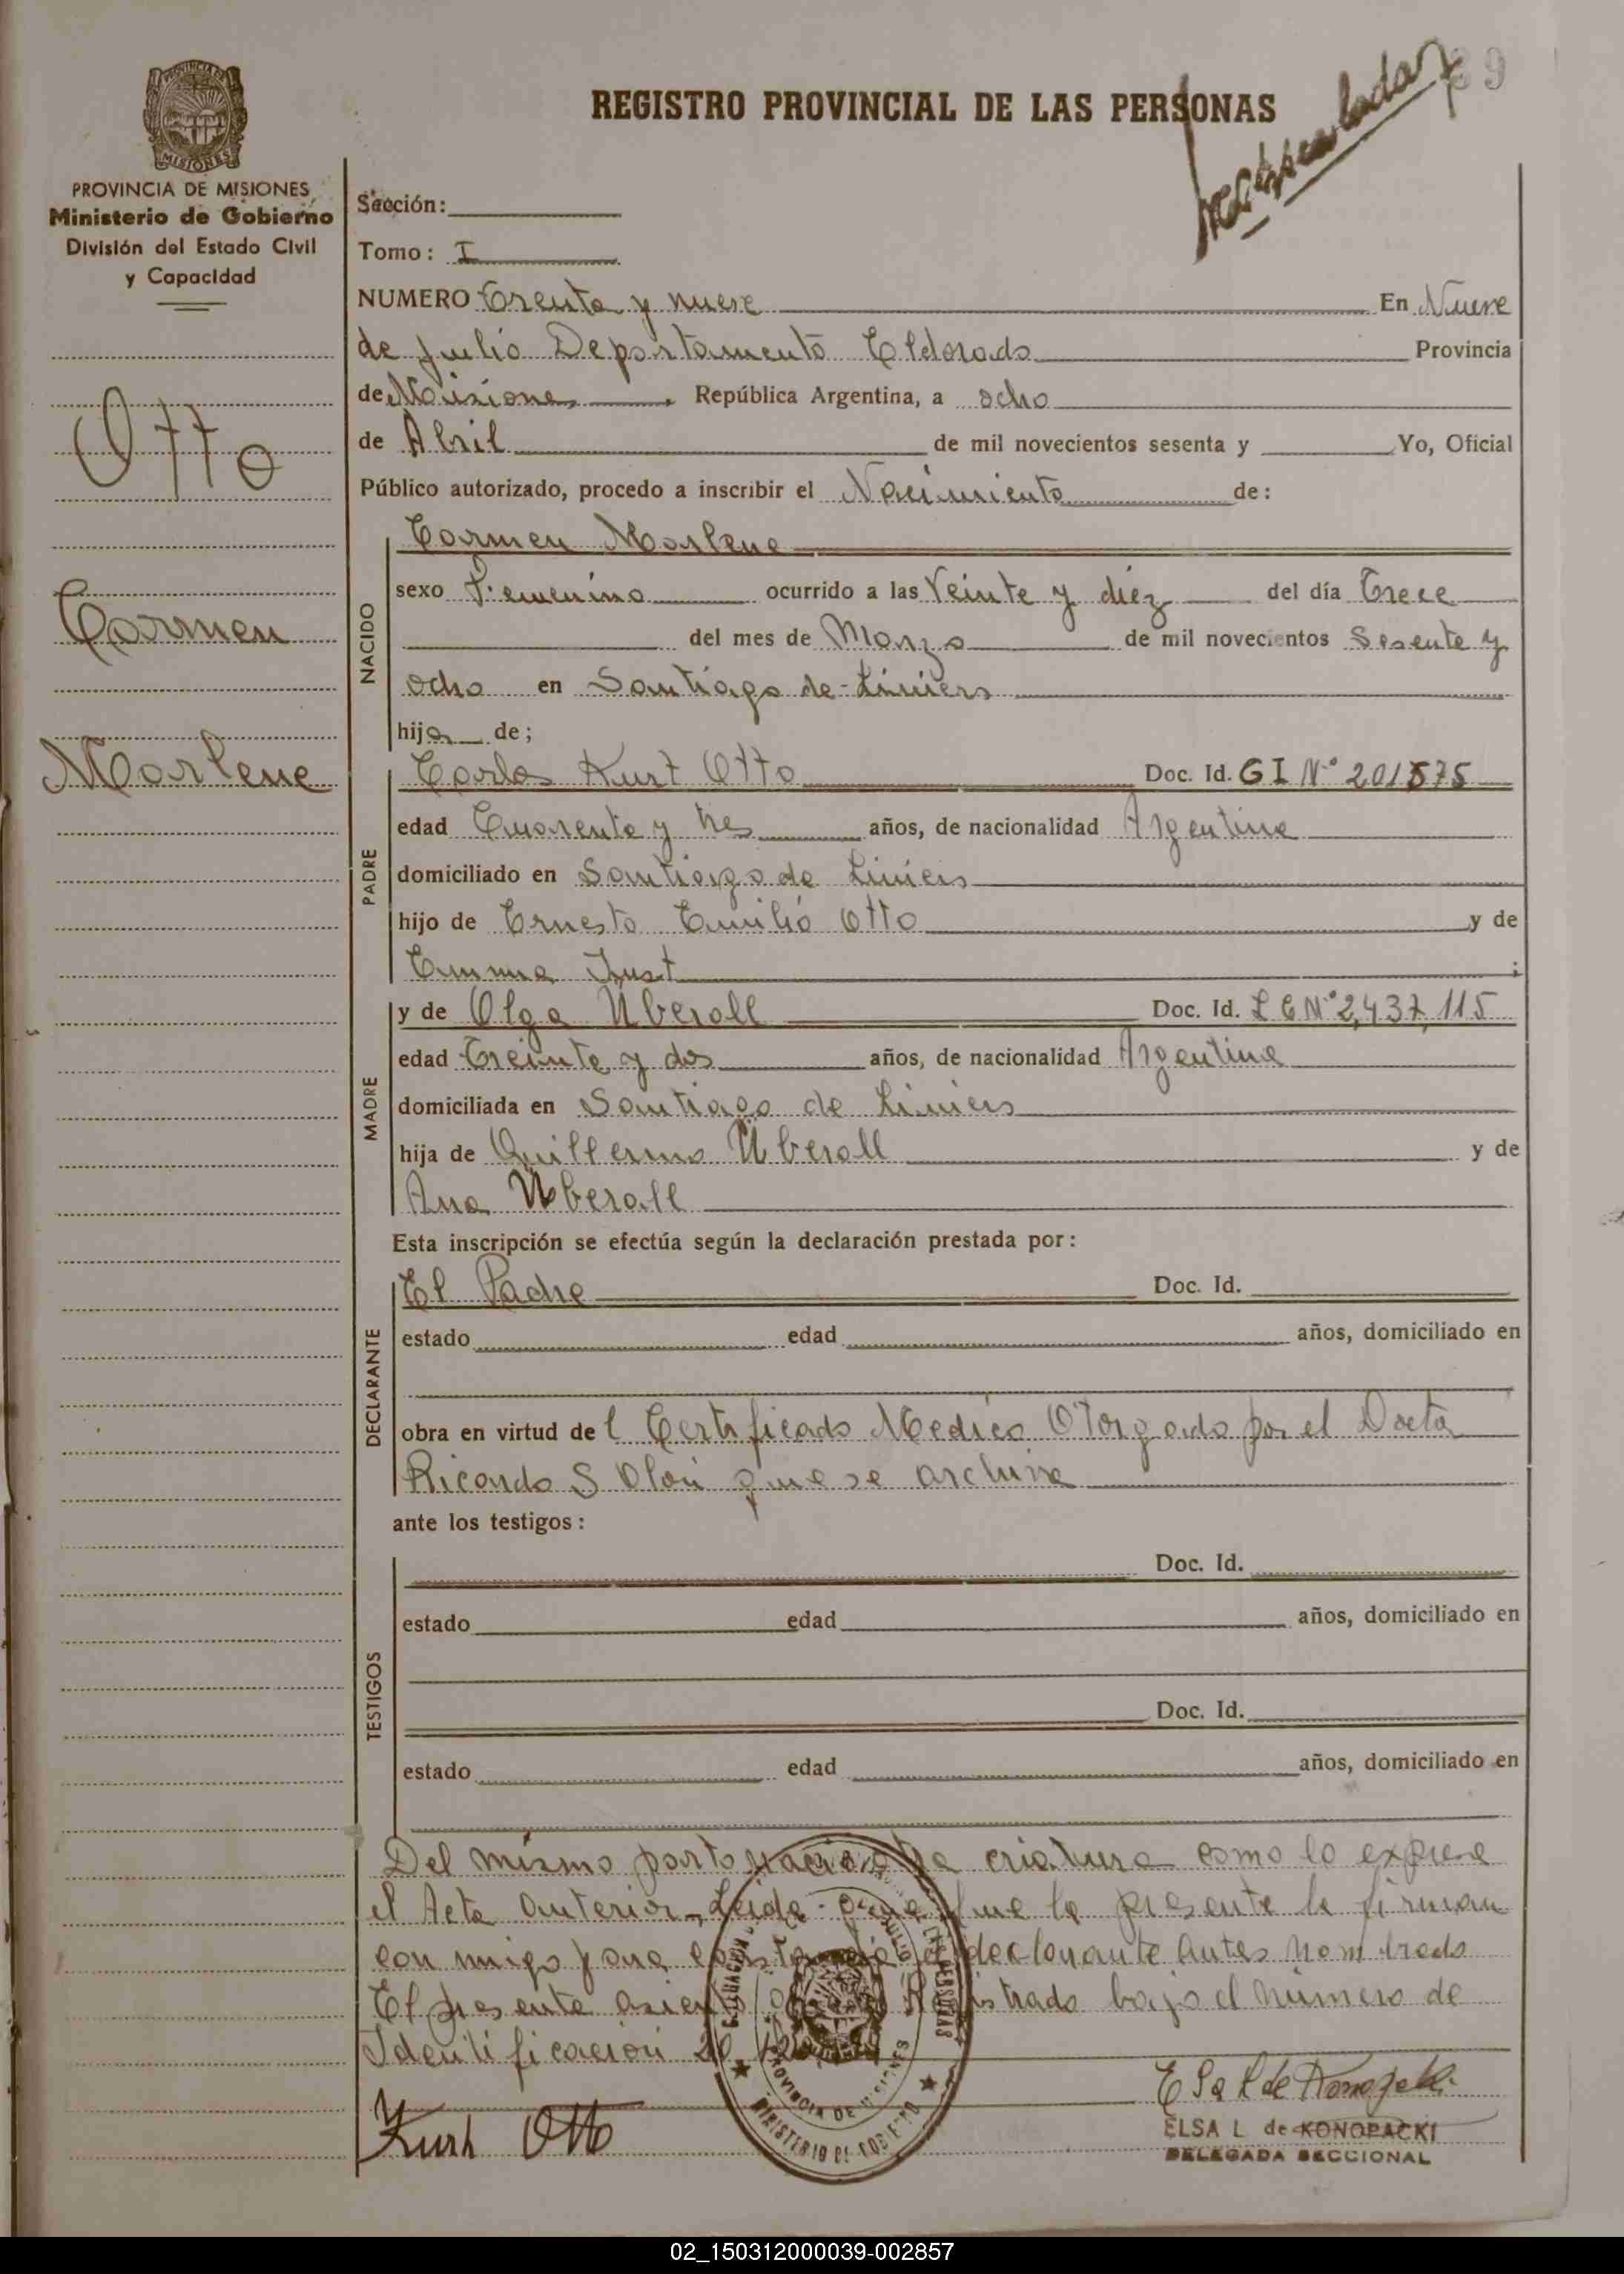 39
REGISTRO PROVINCIAL DE LAS PERSONAS
PROVINCIA DE MISIONES
Ministerio de Gobierno
División del Estado Civil
y Capacidad
Otto
Carmen
Marlene
Sección:
Tomo: I
NUMERO Treinta y nueve En Nueve
de Julio Departamento Eldorado Provincia
de Misiones República Argentina, a ocho
de Abril de mil novecientos sesenta y Yo, Oficial
Público autorizado, procedo a inscribir el Nacimiento de:
NACIDO
Carmen Marlene
sexo Femenino ocurrido a las Veinte y diez del día Trece
del mes de Marzo de mil novecientos Sesenta y
ocho en Santiago de Liniers
hija de;
PADRE
Carlos Kurt Otto Doc. Id. G I Nº 201575
edad Cuarenta y tres años, de nacionalidad Argentina
domiciliado en Santiago de Liniers
hijo de Ernesto Emilio Otto y de
Emma Just;
MADRE
y de Olga Überall Doc. Id. L C Nº 2,437,115
edad Treinta y dos años, de nacionalidad Argentina
domiciliada en Santiago de Liniers
hija de Guillermo Überall y de
Ana Überall
Esta inscripción se efectúa según la declaración prestada por:
DECLARANTE
El Padre Doc. Id.
estado edad años, domiciliado en
obra en virtud del Certificado Medico Otorgado por el Doctor
Ricardo S que se archiva
ante los testigos:
TESTIGOS
Doc. Id.
estado edad años, domiciliado en
Doc. Id.
estado edad años, domiciliado en
Del mismo parto nacio otra criatura como lo exprese
el Acta anterior, Leida que fue la presente la firman
con migo para constancia el declarante antes nombrado
El presente asiento Registrado bajo el número de
Identificacion
Kurt Otto
ELSA L de KONOPACKI
DELEGADA SECCIONAL
MINISTERIO DE GOBIERNO
PROVINCIA DE MISIONES
02_150312000039-002857